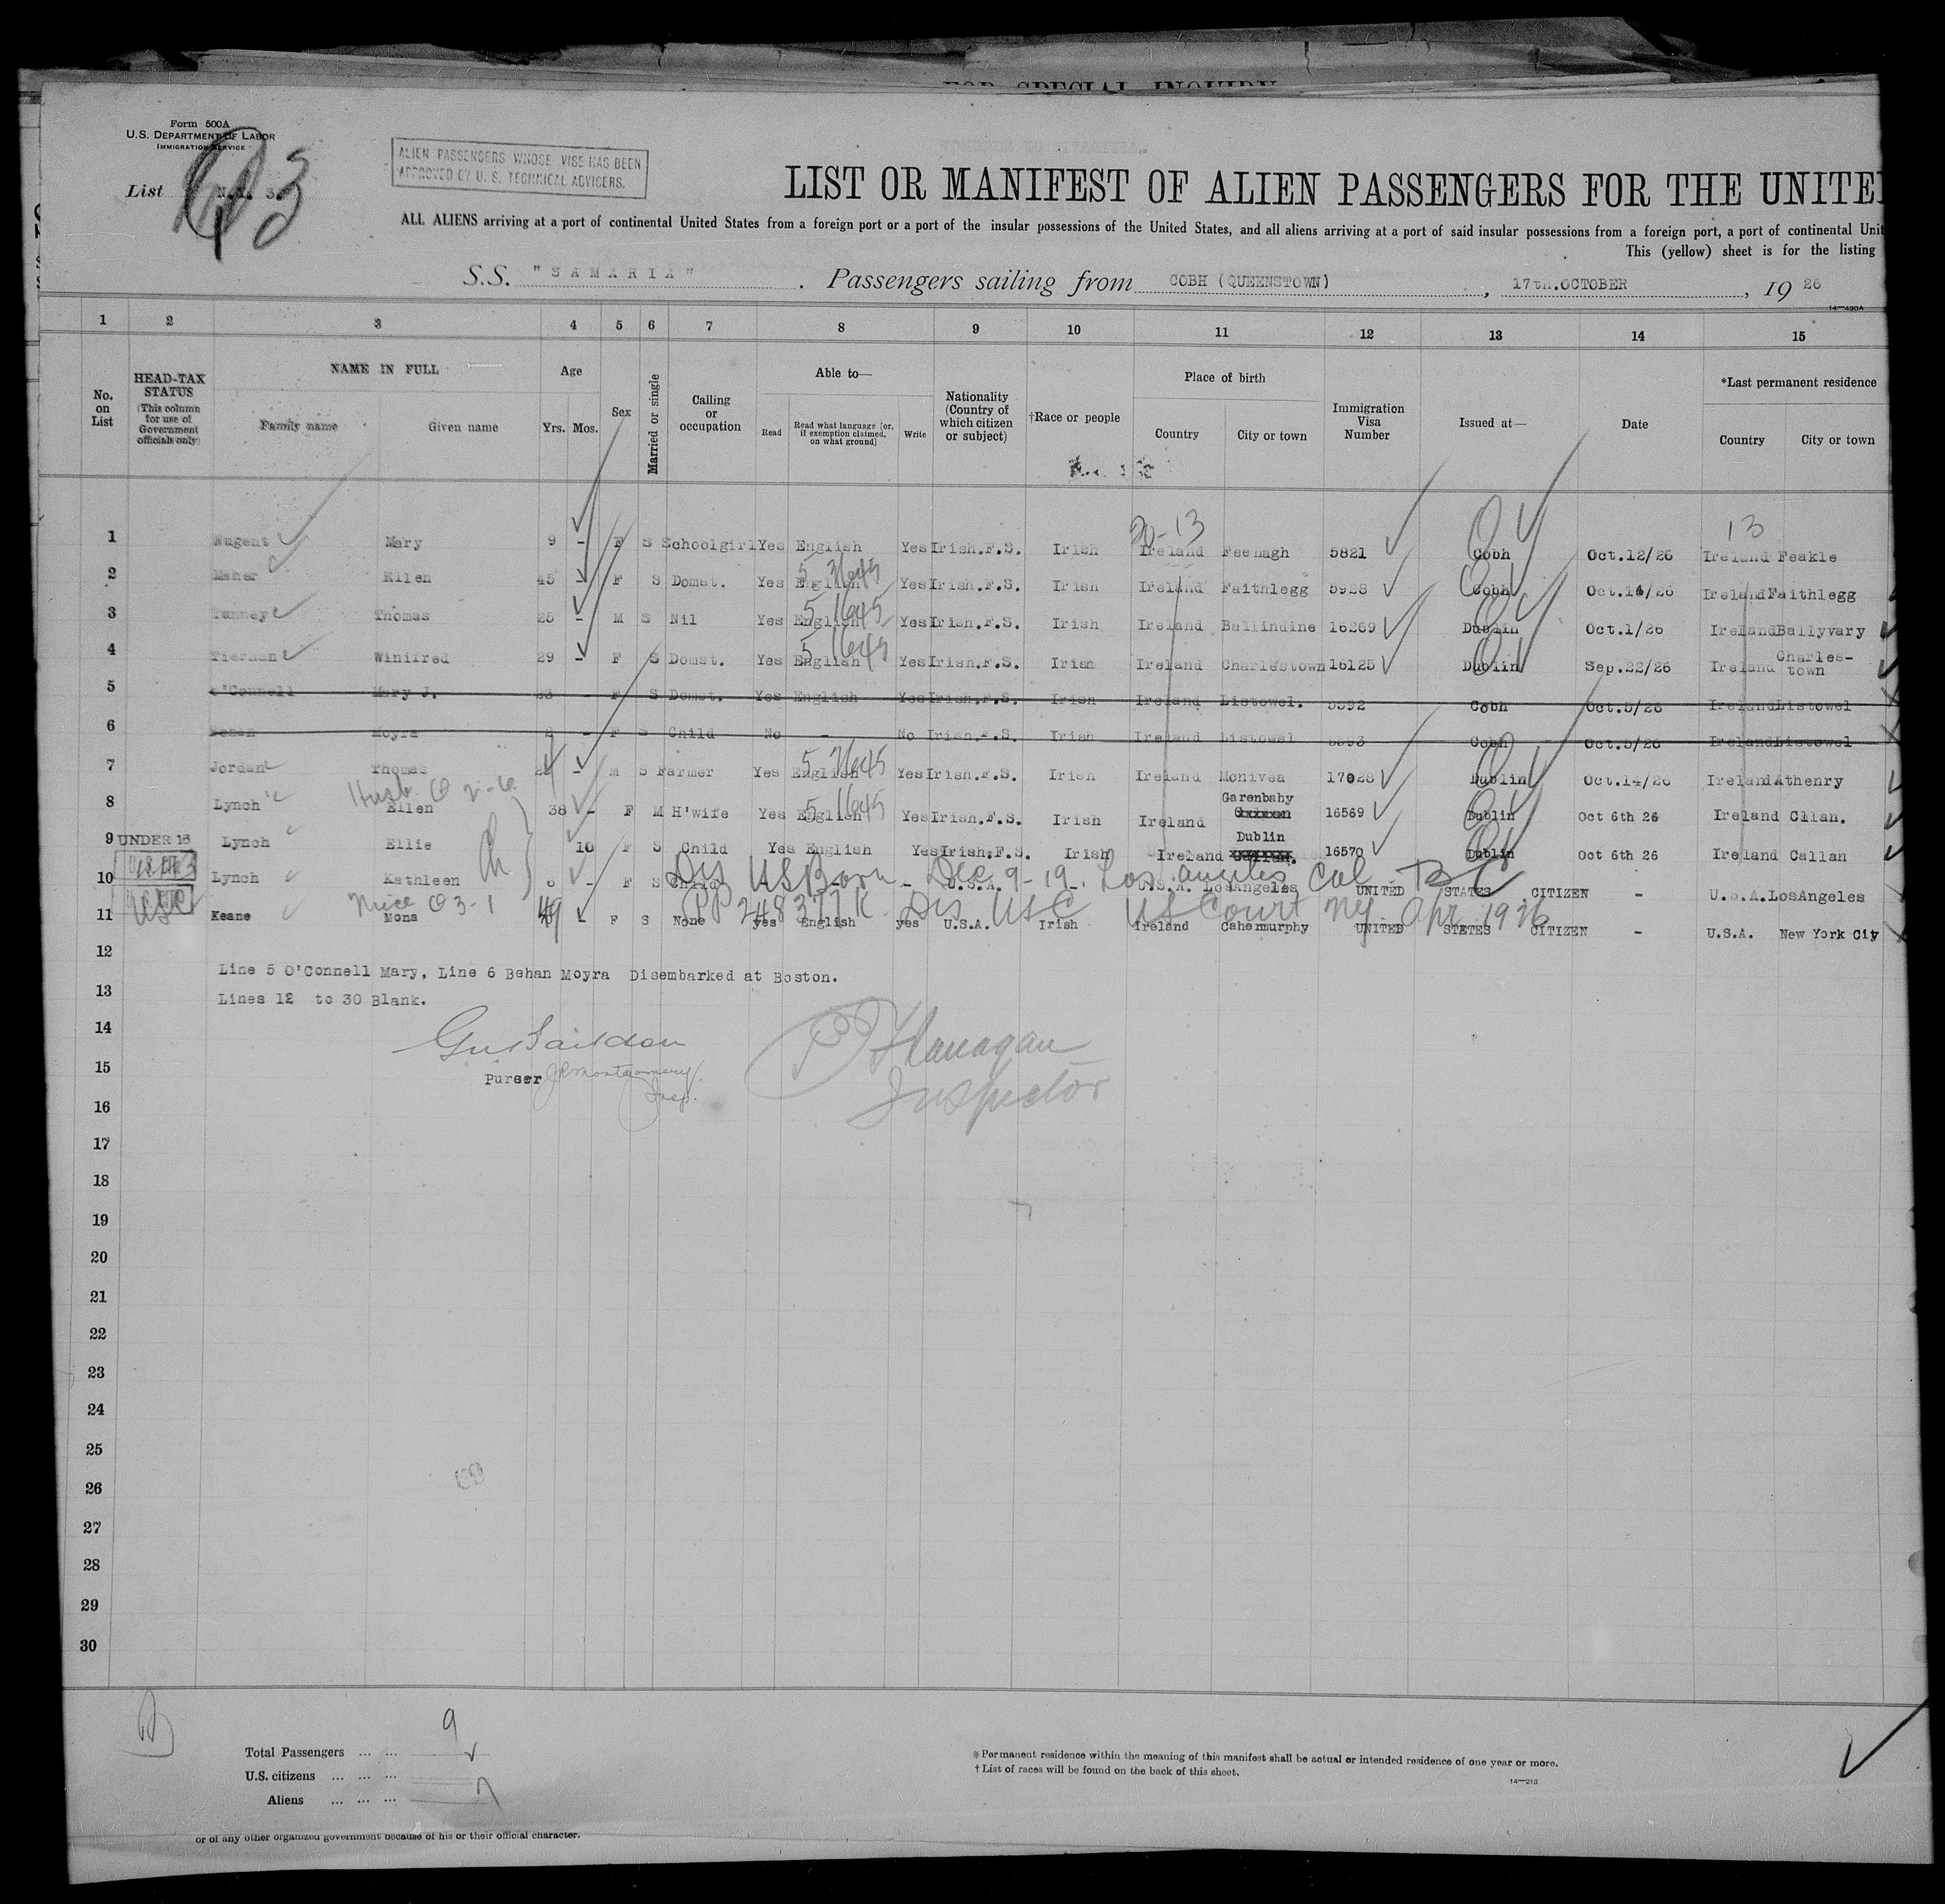 FOR SPECIAL INQUIRY
Form 500A
U.S. DEPARTMENT OF LABOR
IMMIGRATION SERVICE
List 3
ALIEN PASSENGERS WHOSE VISE HAS BEEN
APPROVED BY U. S. TECHNICAL ADVISERS.
LIST OR MANIFEST OF ALIEN PASSENGERS FOR THE UNITE
ALL ALIENS arriving at a port of continental United States from a foreign port or a port of the insular possessions of the United States, and all aliens arriving at a port of said insular possessions from a foreign port, a port of continental Unit
This (yellow) sheet is for the listing
S.S. "SAMARIA". Passengers sailing from COBH (QUEENSTOWN), 17th.OCTOBER, 19 26
14—430A
1 2 3 4 5 6 7 8 9 10 11 12 13 14 15
No. on List
HEAD-TAX STATUS (This column for use of Government officials only)
NAME IN FULL
Family name Given name
Age
Yrs. Mos.
Sex
Married or single
Calling or occupation
Able to—
Read Read what language [or, if exemption claimed, on what ground] Write
Nationality (Country of which citizen or subject)
†Race or people
Place of birth
Country City or town
Immigration Visa Number
Issued at—
Date
*Last permanent residence
Country City or town
20-13 13
1 Nugent Mary 9 - F S Schoolgirl Yes English Yes Irish.F.S. Irish Ireland Feenagh 5821 Cobh Oct.12/26 Ireland Feakle
2 Maher Ellen 45 - F S Domst. Yes English Yes Irish.F.S. Irish Ireland Faithlegg 5928 Cobh Oct.14/26 Ireland Faithlegg
3 Thomas 25 - M S Nil Yes English Yes Irish.F.S. Irish Ireland Ballindine 16269 Dublin Oct.1/26 Ireland Ballyvary
4 Tiernan Winifred 29 - F S Domst. Yes English Yes Irish.F.S. Irish Ireland Charlestown 16125 Dublin Sep.22/26 Ireland Charles-town
5 O'Connell Mary J. - F S Domst. Yes English Yes Irish.F.S. Irish Ireland Listowel. 5592 Cobh Oct.5/26 Ireland Listowel
6 Behan Moyra - F S Child No - No Irish.F.S. Irish Ireland Listowel 5593 Cobh Oct.5/26 Ireland Listowel
7 Jordan Thomas - M S Farmer Yes English Yes Irish.F.S. Irish Ireland Monivea 17028 Dublin Oct.14/26 Ireland Athenry
Husb.
8 Lynch Ellen 38 - F M H'wife Yes English Yes Irish.F.S. Irish Ireland Garenbahy 16569 Dublin Oct 6th 26 Ireland Cllan.
9 UNDER 16 Lynch Ellie 10 F S Child Yes English Yes Irish.F.S. Irish Ireland Dublin 16570 Dublin Oct 6th 26 Ireland Callan
Dis US Born Dec 9-19. Los Angeles Cal. BC
10 Lynch Kathleen 6 - F S Child - - - U.S.A. - U.S.A. LosAngeles UNITED STATES CITIZEN - U.S.A. LosAngeles
Niece 3-1 PP 248377K. Dis USC US Court NY Apr 1926
11 USC Keane Mona 49 - F S None yes English yes U.S.A. Irish Ireland Cahermurphy UNITED STATES CITIZEN - U.S.A. New York City
12
Line 5 O'Connell Mary, Line 6 Behan Moyra Disembarked at Boston.
13
Lines 12 to 30 Blank.
14
15
Purser J R Montgomery Insp.
P Flanagan
Inspector
16
17
18
19
20
21
22
23
24
25
26
27
28
29
30
Total Passengers ... ... 9
U.S. citizens ... ... ...
Aliens ... ... ... 7
*Permanent residence within the meaning of this manifest shall be actual or intended residence of one year or more.
†List of races will be found on the back of this sheet.
14—213
or of any other organized government because of his or their official character.